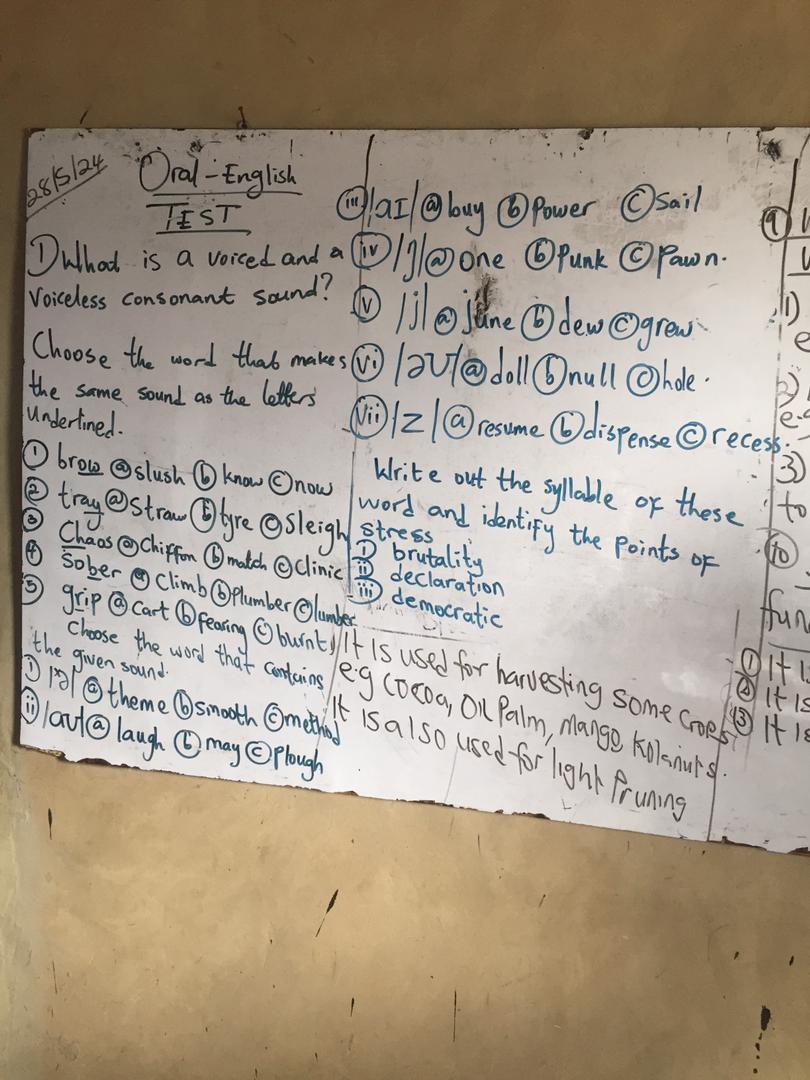 28/5/24
Oral-English
TEST
1) What is a voiced and a
voiceless consonant sound?
Choose the word that makes
the same sound as the letters
underlined.
① brow ⓐ slush ⓑ know ⓒ now
② tray ⓐ Straw ⓑ tyre ⓒ Sleigh
③ Chaos ⓐ Chiffon ⓑ match ⓒ clinic
④ Sober ⓐ Climb ⓑ Plumber ⓒ lumber
⑤ grip ⓐ cart ⓑ fearing ⓒ burnt
Choose the word that contains
the given sound.
i) ⓐ theme ⓑ smooth ⓒ method
ii /aʊ/ ⓐ laugh ⓑ may ⓒ plough
iii /aI/ ⓐ buy ⓑ Power ⓒ Sail
iv ⓐ one ⓑ Punk ⓒ Pawn.
v /j/ ⓐ june ⓑ dew ⓒ grew
vi /əʊ/ ⓐ doll ⓑ null ⓒ hole.
vii /z/ ⓐ resume ⓑ dispense ⓒ recess.
Write out the syllable of these
word and identify the points of
stress
i brutality
ii declaration
iii democratic
It Is used for harvesting some crops
e.g Cocoa, Oil Palm, mango, Kolanuts.
It Is also used for light Pruning
9
1)
2)
e.g
3)
to
10
fun
① It
② It is
③ It is